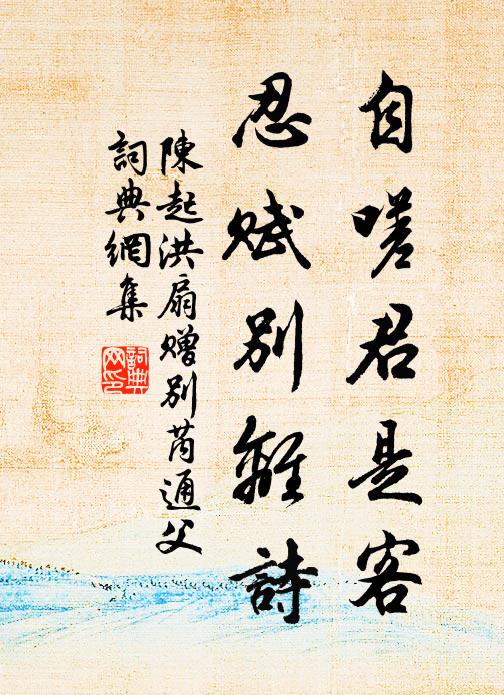 自嗟君是客
忍賦別離詩
陳起洪扇贈別芮通父
詞典網集
詞典
网印